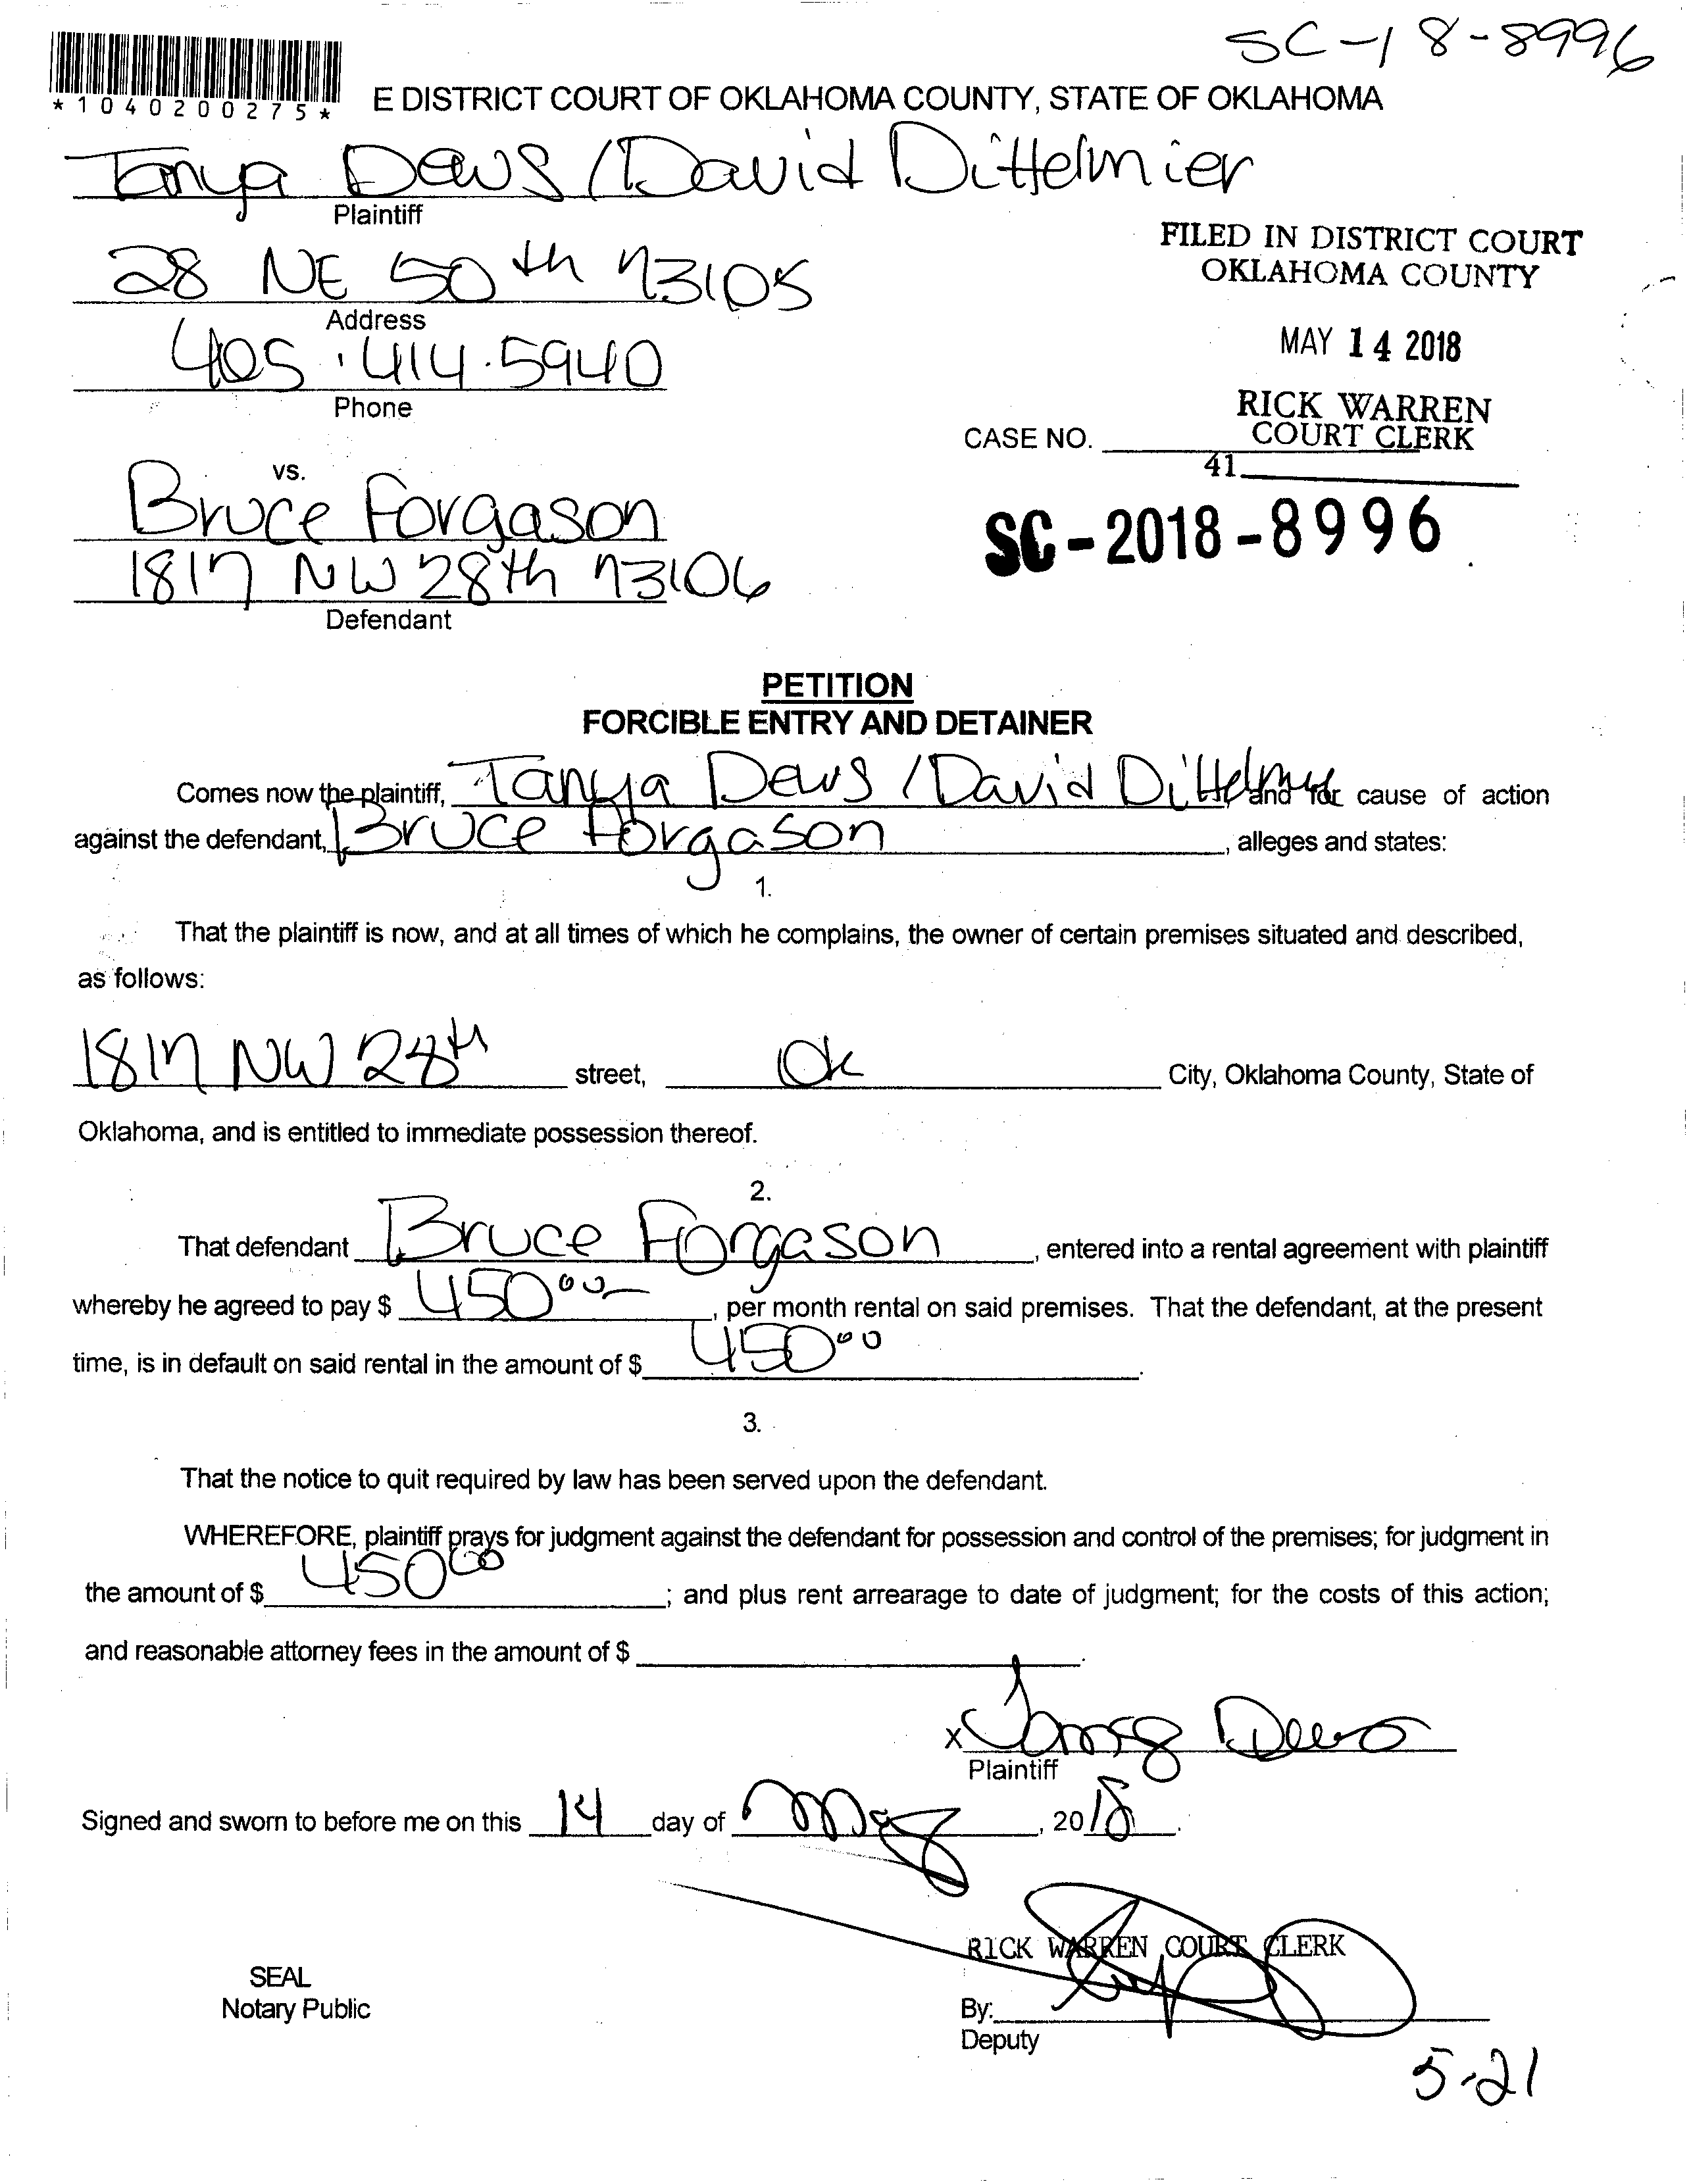 SC-18-8996
*1040200275*
E DISTRICT COURT OF OKLAHOMA COUNTY, STATE OF OKLAHOMA
Tanya Dews / David Dittelmier
Plaintiff
28 NE 50th 73105
Address
405.414.5940
Phone
FILED IN DISTRICT COURT
OKLAHOMA COUNTY
MAY 14 2018
RICK WARREN
COURT CLERK
CASE NO.
41
SC-2018-8996
vs.
Bruce Forgason
1817 NW 28th 73106
Defendant
PETITION
FORCIBLE ENTRY AND DETAINER
Comes now the plaintiff, Tanya Dews / David , and for cause of action
against the defendant, Bruce Forgason , alleges and states:
1.
That the plaintiff is now, and at all times of which he complains, the owner of certain premises situated and described,
as follows:
1817 NW 28th street, Ok City, Oklahoma County, State of
Oklahoma, and is entitled to immediate possession thereof.
2.
That defendant Bruce Forgason , entered into a rental agreement with plaintiff
whereby he agreed to pay $ 450 00 , per month rental on said premises. That the defendant, at the present
time, is in default on said rental in the amount of $ 450 00 .
3.
That the notice to quit required by law has been served upon the defendant.
WHEREFORE, plaintiff prays for judgment against the defendant for possession and control of the premises; for judgment in
the amount of $ 450 00 ; and plus rent arrearage to date of judgment; for the costs of this action;
and reasonable attorney fees in the amount of $ .
X Tanya Dews
Plaintiff
Signed and sworn to before me on this 14 day of May , 2018 .
RICK WARREN COURT CLERK
SEAL
Notary Public
By:
Deputy
5-21